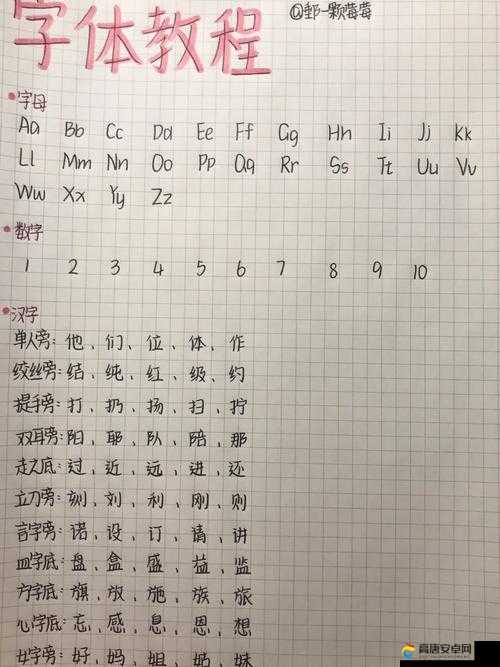 字体教程
@邹一颗莓莓
字母
Aa Bb Cc Dd Ee Ff Gg Hh Ii Jj Kk
Ll Mm Nn Oo Pp Qq Rr Ss Tt Uu Vv
Ww Xx Yy Zz
数字
1 2 3 4 5 6 7 8 9 10
汉字
单人旁:他、们、位、体、作
绞丝旁:结、纯、红、级、约
提手旁:打、扔、扬、扫、拧
双耳旁:阳、耶、队、陪、那
走之底:过、近、远、进、还
立刀旁:刻、刘、利、刚、则
言字旁:诺、设、订、请、讲
皿字底:盘、盒、盛、益、监
方字底:旗、放、施、族、旅
心字底:忘、感、息、恩、想
女字旁:好、妈、姐、奶、妹
高唐安卓网